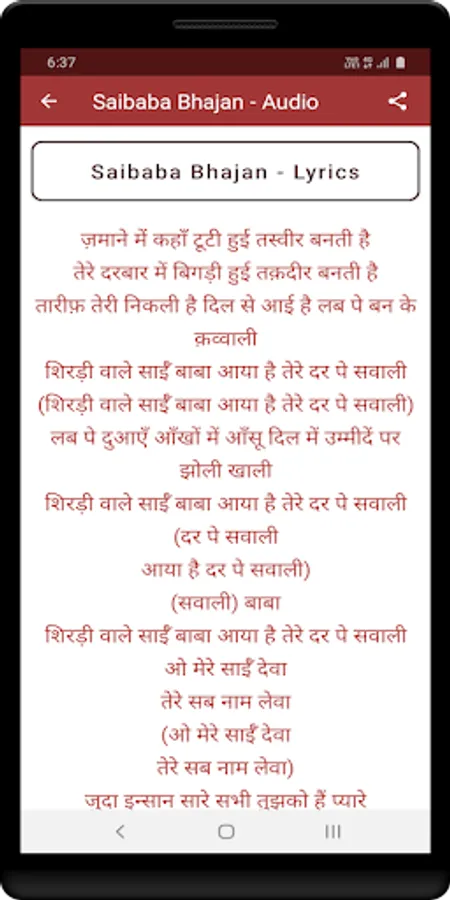 6:37
Saibaba Bhajan - Audio
Saibaba Bhajan - Lyrics
ज़माने में कहाँ टूटी हुई तस्वीर बनती है
तेरे दरबार में बिगड़ी हुई तक़दीर बनती है
तारीफ़ तेरी निकली है दिल से आई है लब पे बन के
क़व्वाली
शिरड़ी वाले साईं बाबा आया है तेरे दर पे सवाली
(शिरड़ी वाले साईं बाबा आया है तेरे दर पे सवाली)
लब पे दुआएँ आँखों में आँसू दिल में उम्मीदें पर
झोली खाली
शिरड़ी वाले साईं बाबा आया है तेरे दर पे सवाली
(दर पे सवाली
आया है दर पे सवाली)
(सवाली) बाबा
शिरड़ी वाले साईं बाबा आया है तेरे दर पे सवाली
ओ मेरे साईं देवा
तेरे सब नाम लेवा
(ओ मेरे साईं देवा
तेरे सब नाम लेवा)
जुदा इन्सान सारे सभी तुझको हैं प्यारे